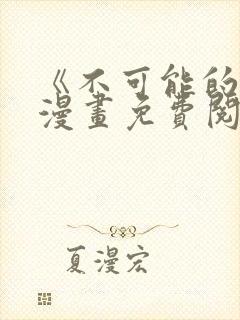 《不可能的
漫畫免費閱
夏漫宏